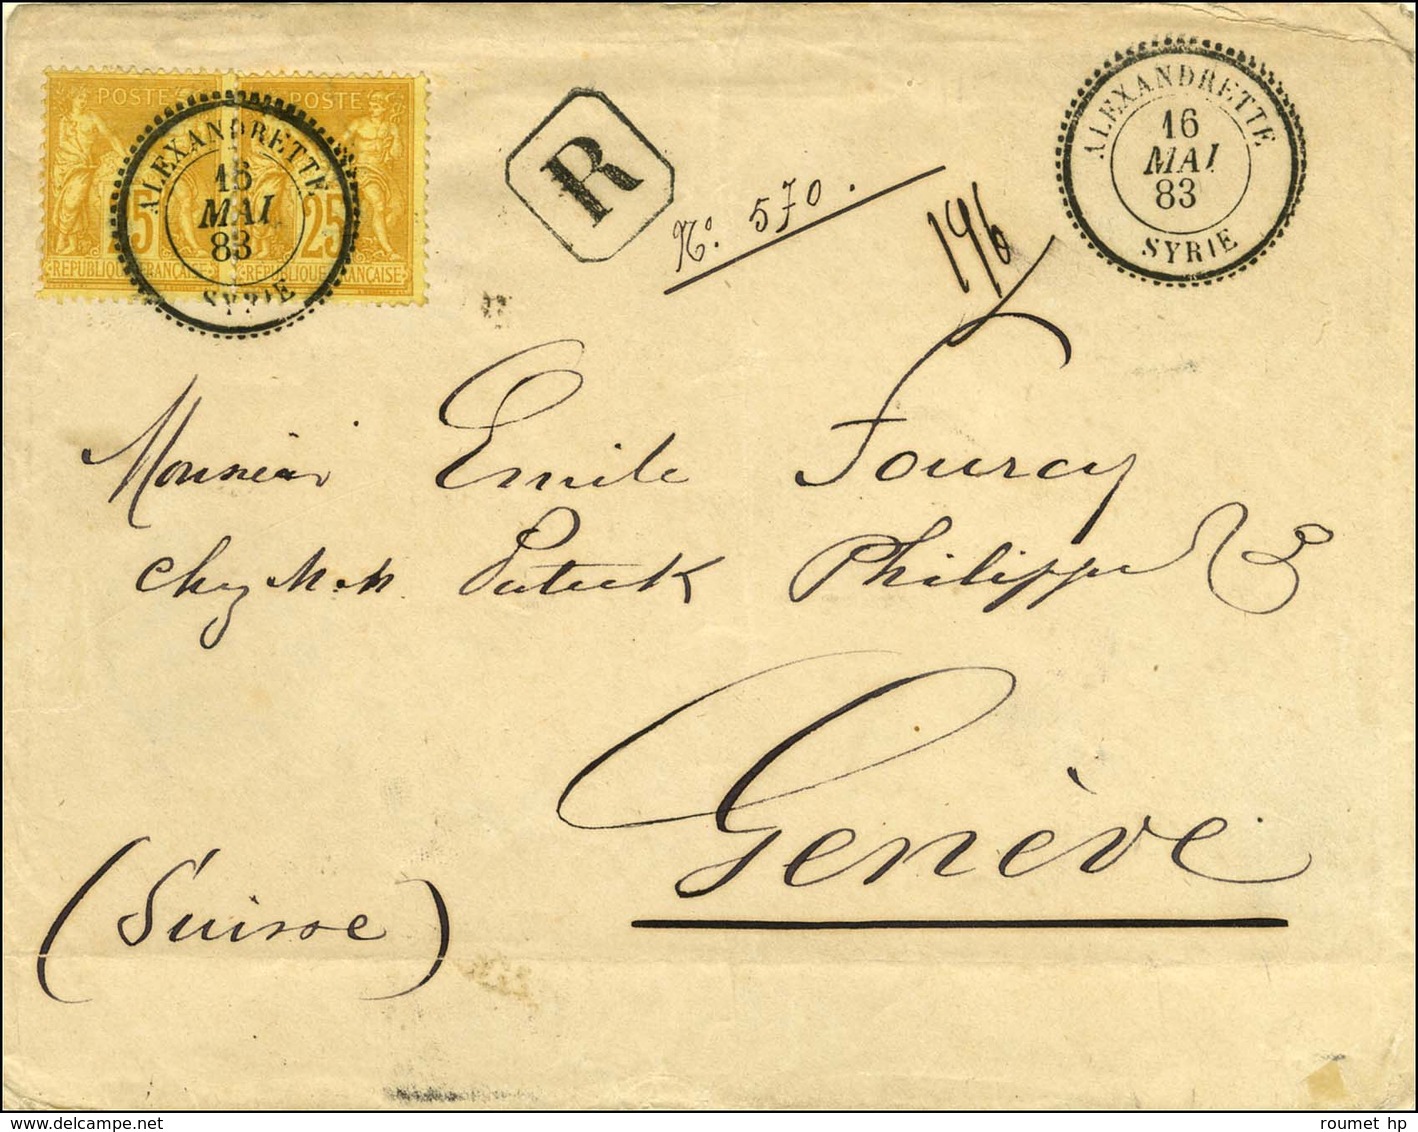 POSTES POSTES
25 25
REPUBLIQUE FRANÇAISE REPUBLIQUE FRANÇAISE
ALEXANDRETTE
16
MAI
83
SYRIE
R
N°. 570.
196
ALEXANDRETTE
16
MAI
83
SYRIE
Monsieur Emile Fourcy
chez M.M. Patek Philippe
Genève
(Suisse)
roumet hp